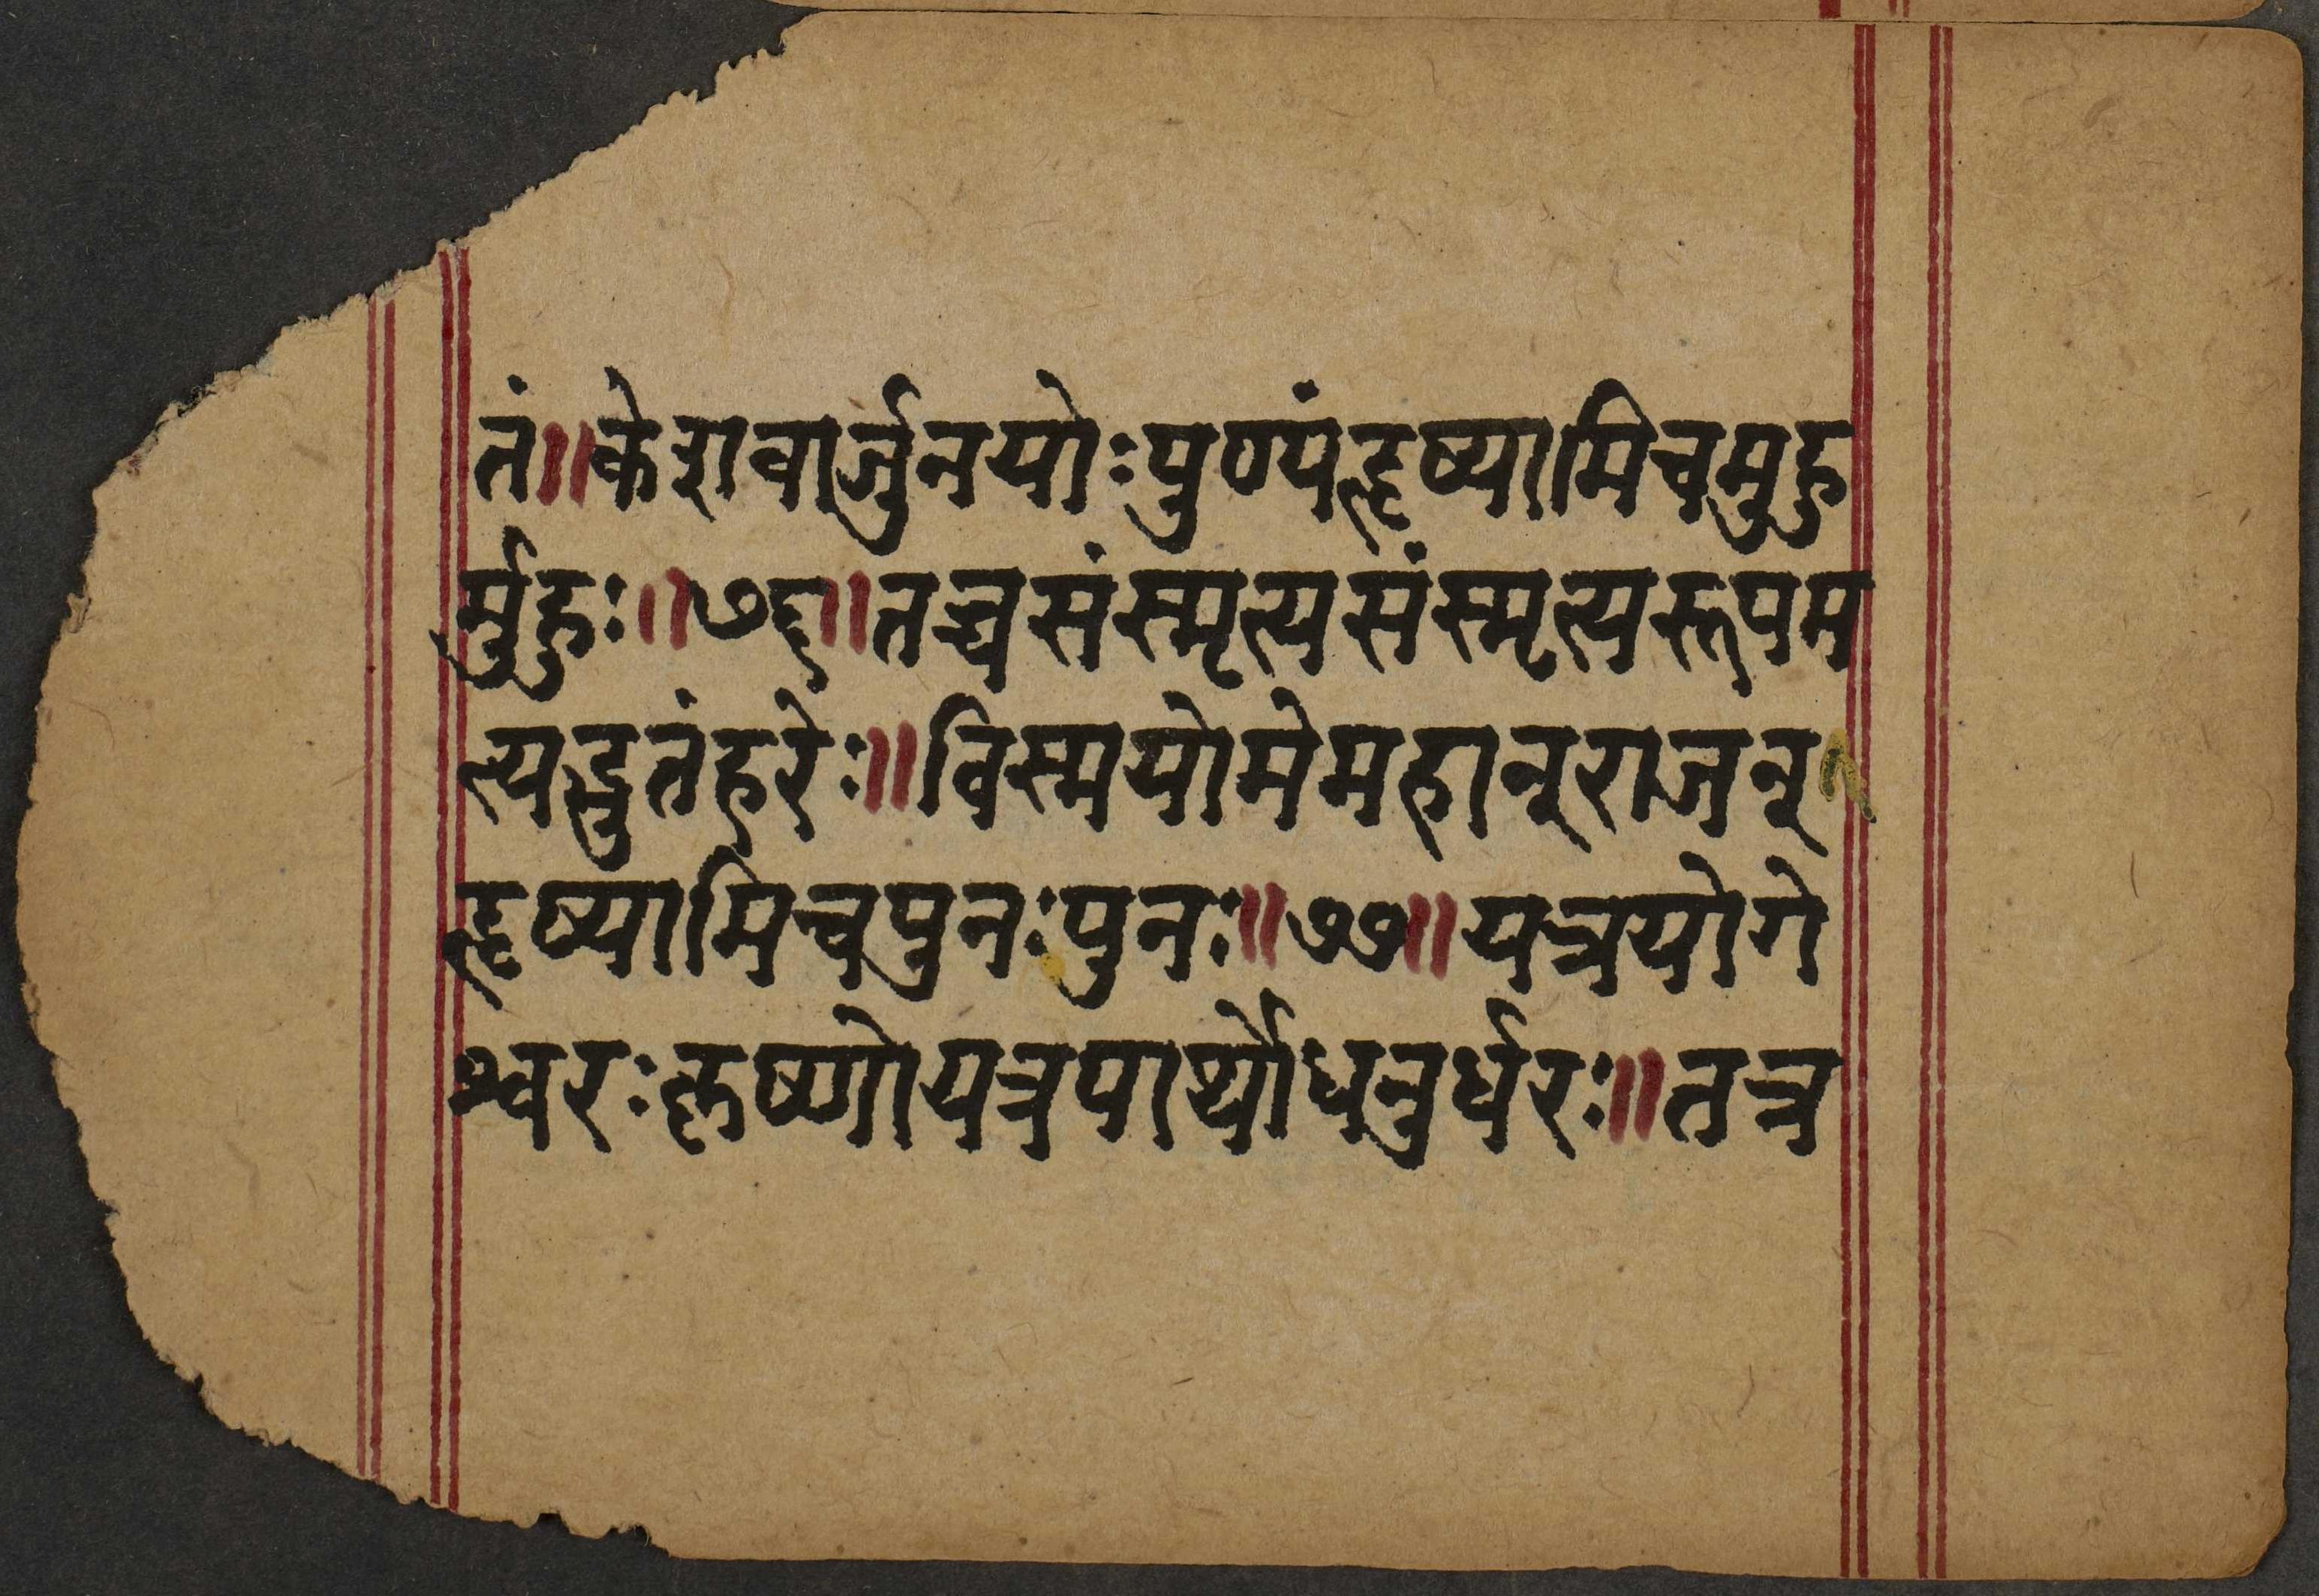 तं॥केशवार्जुनयोःपुण्यंहृष्यामिचमुहु
र्मुहुः॥७६॥तच्चसंस्मृत्यसंस्मृत्यरूपम
त्यद्भुतंहरेः॥विस्मयोमेमहान्राजन्
हृष्यामिचपुनःपुनः॥७७॥यत्रयोगे
श्वरःकृष्णोयत्रपार्थोधनुर्धरः॥तत्र